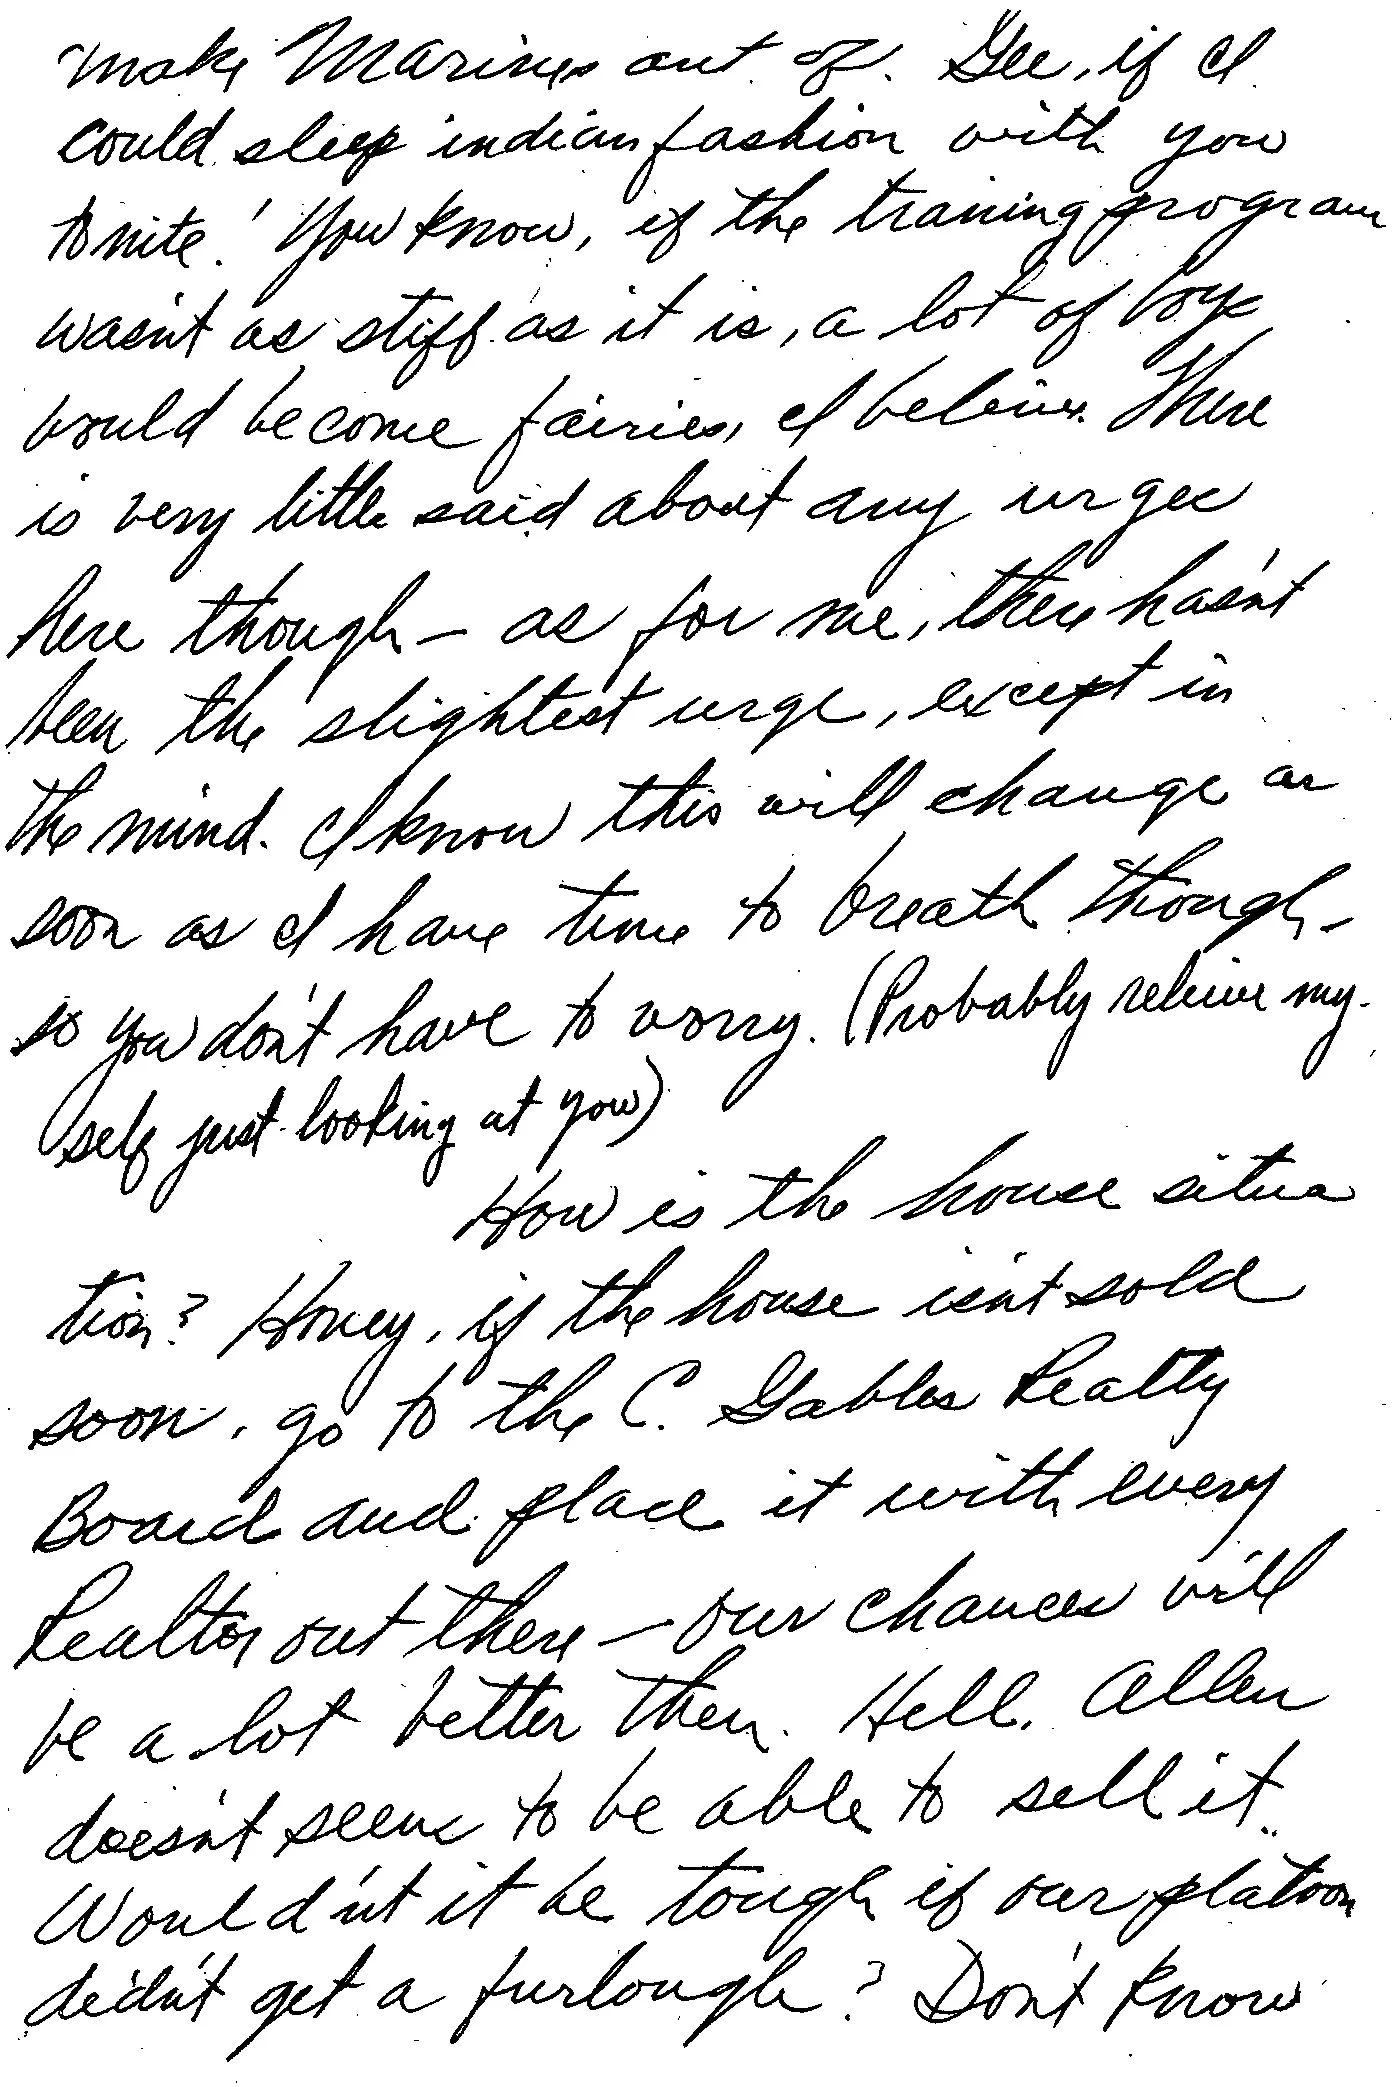 make Marines out of. Gee, if I
could sleep indian fashion with you
tonite! You know, if the training program
wasn't as stiff as it is, a lot of boys
would become fairies, I believe. There
is very little said about any urges
here though — as for me, there hasn't
been the slightest urge, except in
the mind. I know this will change as
soon as I have time to breath though -
so you don't have to worry. (Probably relieve my-
self just looking at you)
How is the house situa
tion? Honey, if the house isn't sold
soon, go to the C. Gables Realty
Board and place it with every
Realtor out there — our chances will
be a lot better then. Hell, Allen
doesn't seem to be able to sell it.
Would'nt it be tough if our platoon
didn't get a furlough? Don't know